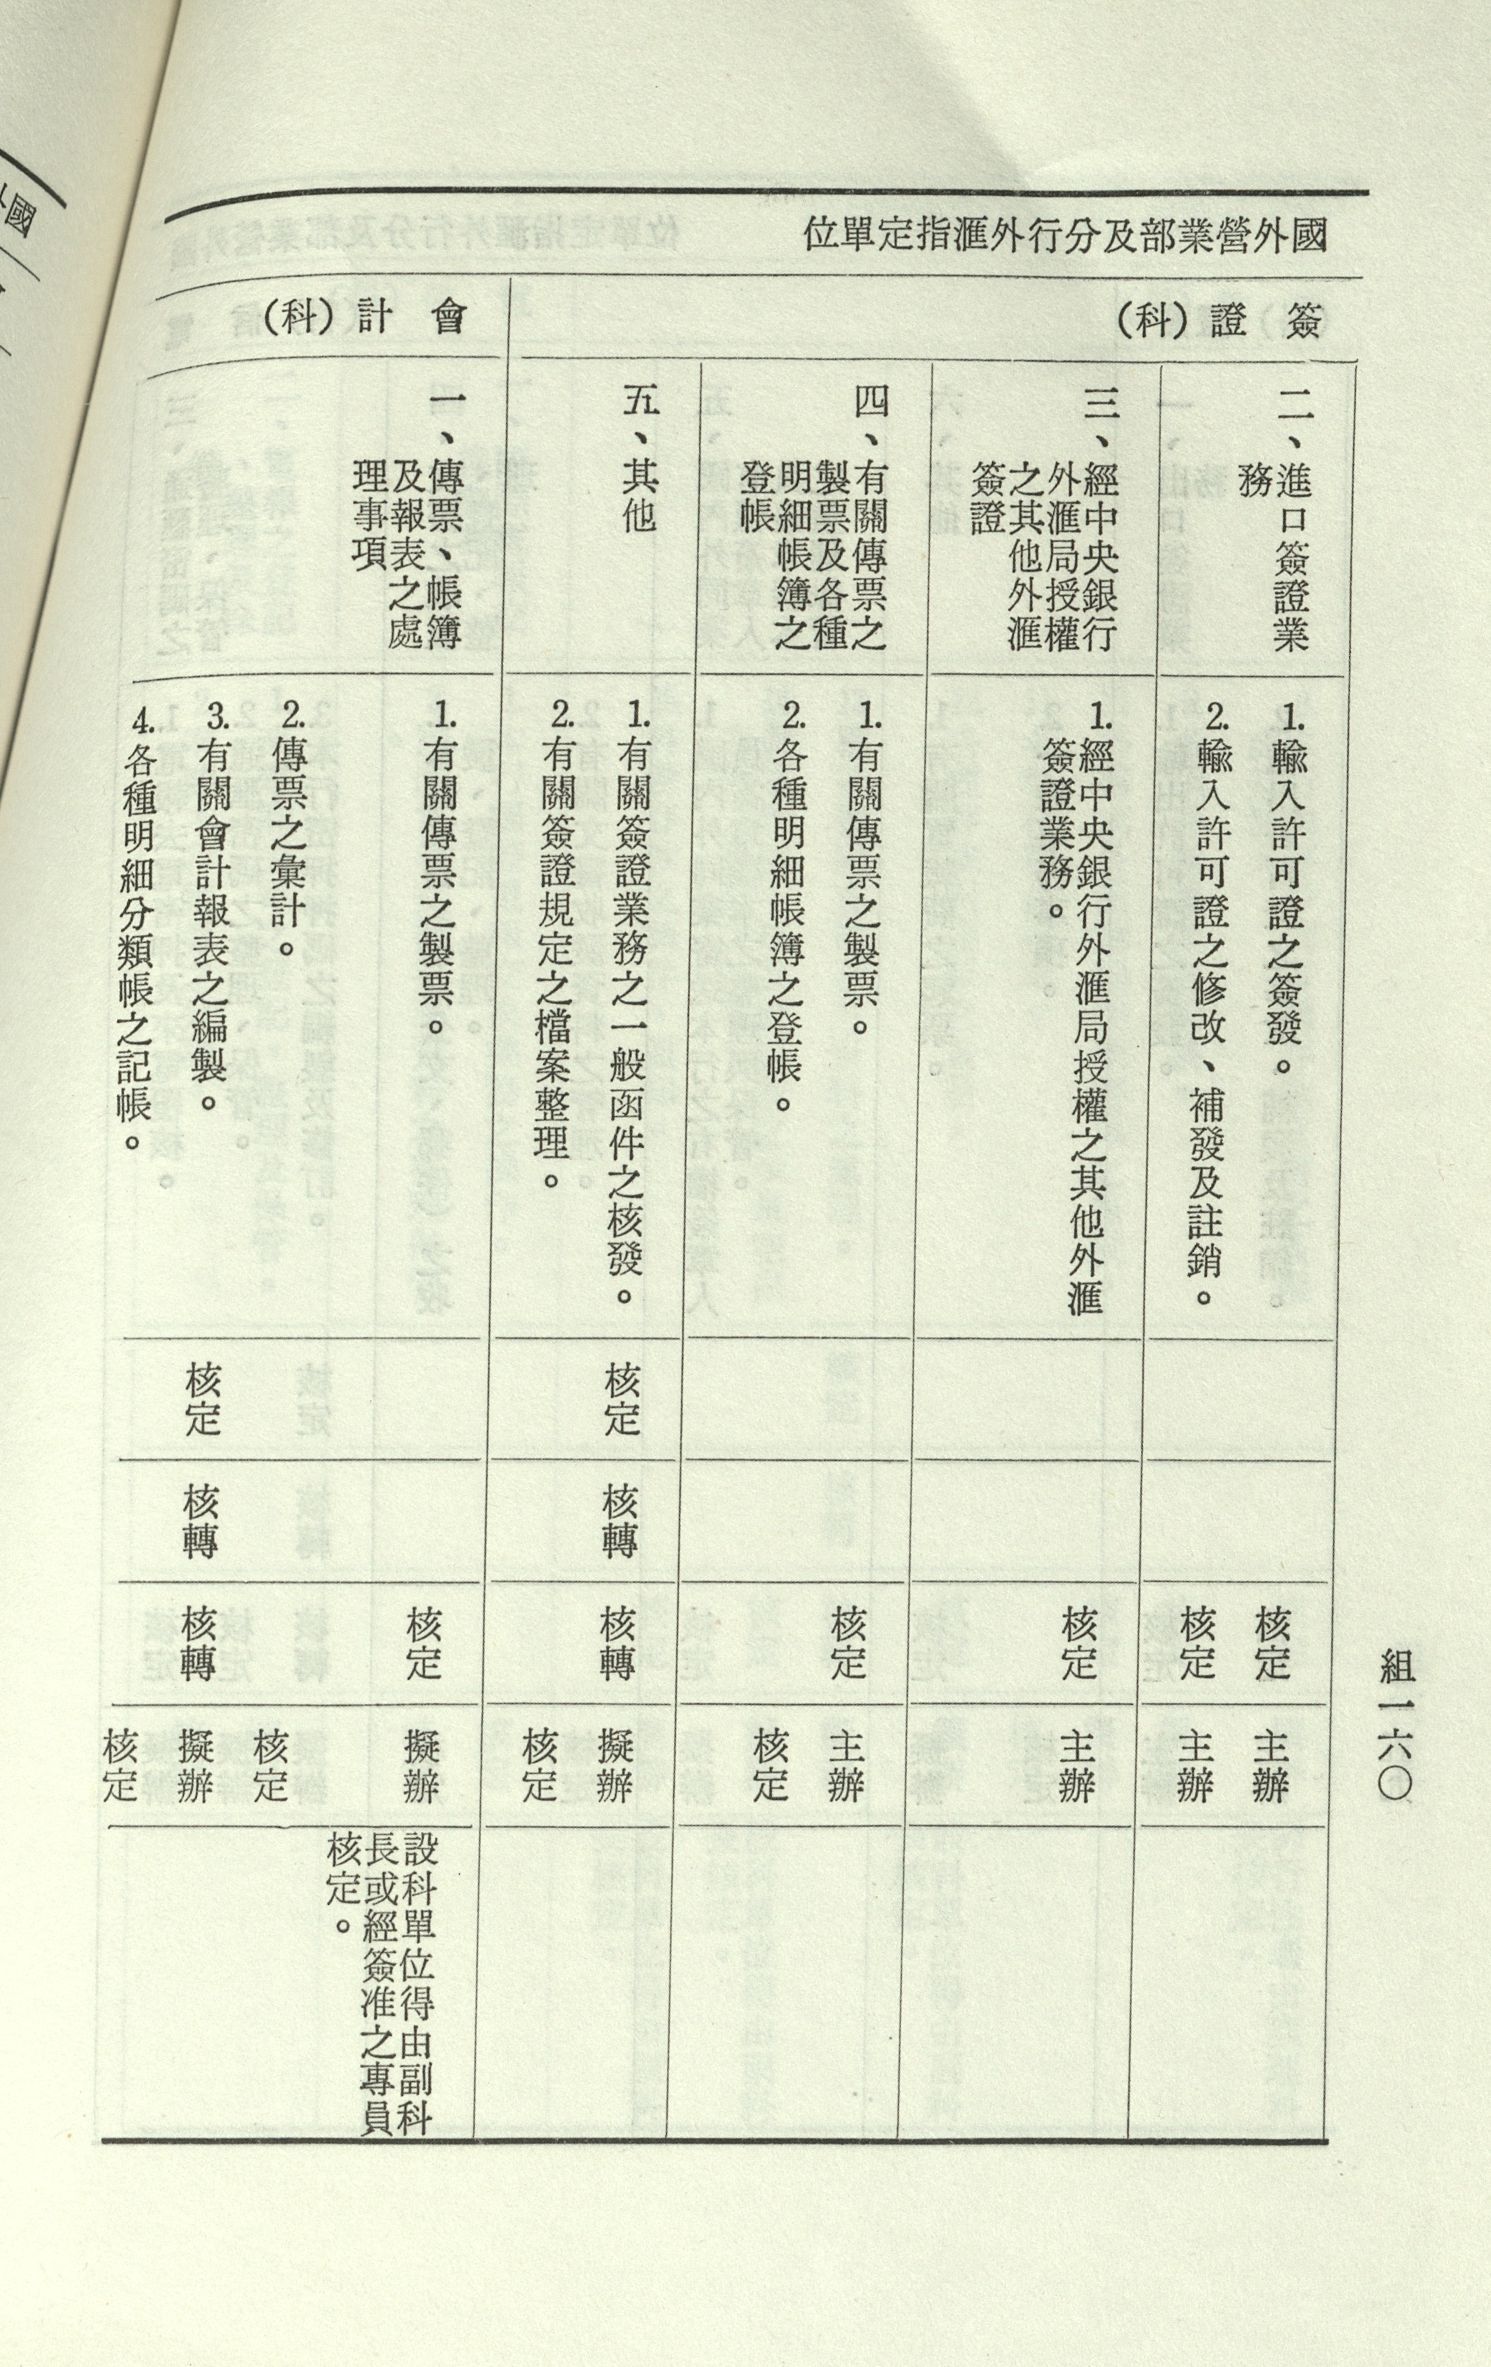 組一六〇
國外營業部及分行外滙指定單位
簽證(科)
二、進口簽證業
務
1.輸入許可證之簽發。
核定
主辦
2.輸入許可證之修改、補發及註銷。
核定
主辦
三、經中央銀行
外滙局授權
之其他外滙
簽證
1.經中央銀行外滙局授權之其他外滙
簽證業務。
核定
主辦
四、有關傳票之
製票及各種
明細帳簿之
登帳
1.有關傳票之製票。
核定
主辦
2.各種明細帳簿之登帳。
核定
五、其他
1.有關簽證業務之一般函件之核發。
核定
核轉
核轉
擬辦
2.有關簽證規定之檔案整理。
核定
會計(科)
一、傳票、帳簿
及報表之處
理事項
1.有關傳票之製票。
核定
擬辦
設科單位得由副科
長或經簽准之專員
核定。
2.傳票之彙計。
核定
3.有關會計報表之編製。
核定
核轉
核轉
擬辦
4.各種明細分類帳之記帳。
核定
國